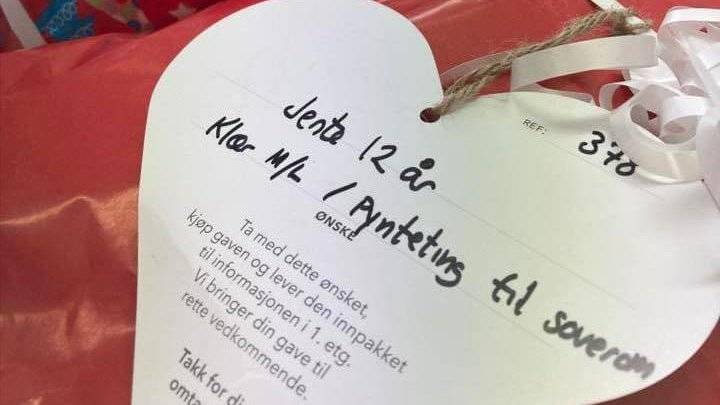 REF: 378
Jente 12 år
Klær M/L / Pynteting til soverom
ØNSKE
Ta med dette ønsket,
kjøp gaven og lever den innpakket
til informasjonen i 1. etg.
Vi bringer din gave til
rette vedkommende.
Takk for di
omta